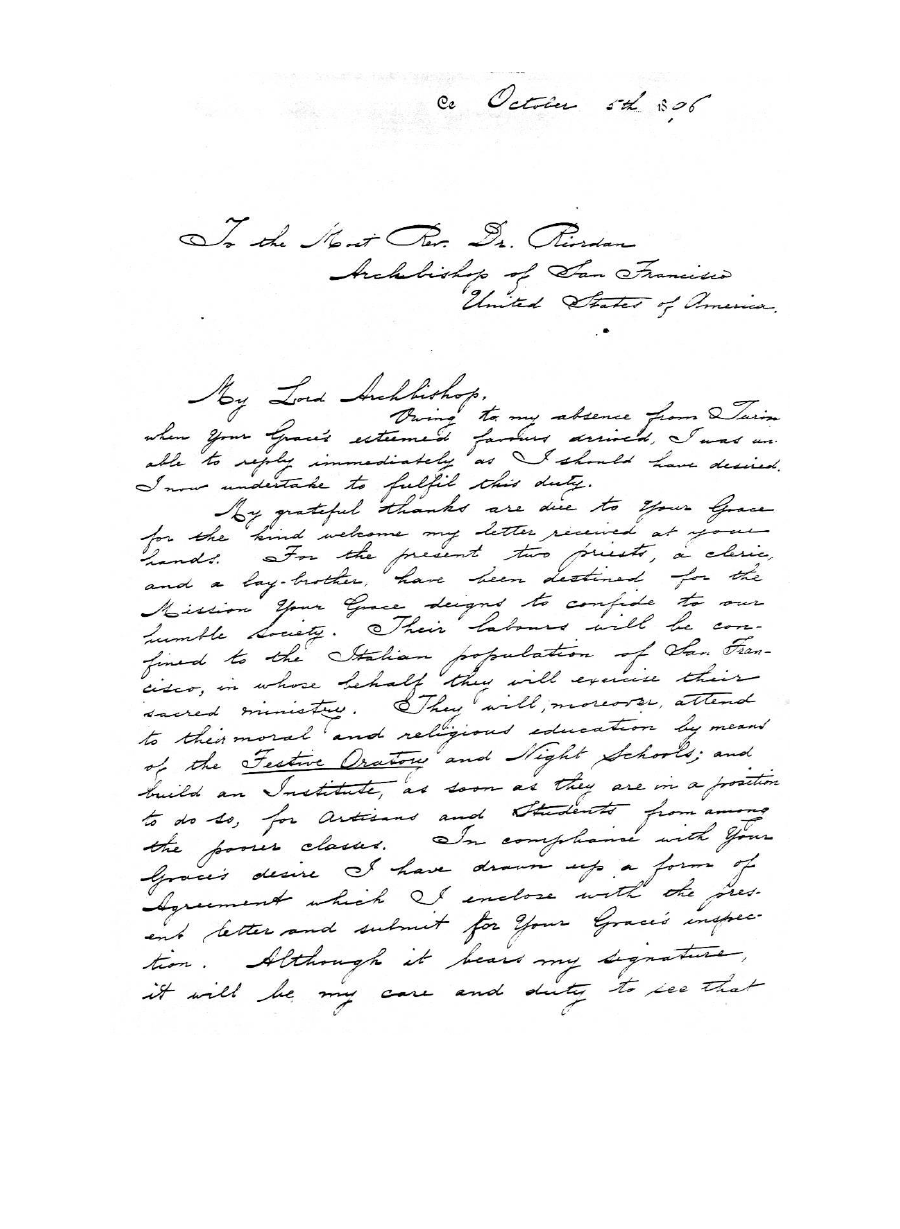 Ce October 5th 1896
To the Most Rev. Dr. Riordan
Archbishop of San Francisco
United States of America.
My Lord Archbishop.
Owing to my absence from Turin
when Your Grace's esteemed favours arrived, I was un-
able to reply immediately as I should have desired.
I now undertake to fulfil this duty.
My grateful thanks are due to Your Grace
for the kind welcome my letter received at your
hands. For the present two priests, a cleric,
and a lay-brother, have been destined for the
Mission Your Grace deigns to confide to our
humble Society. Their labours will be con-
fined to the Italian population of San Fran-
cisco, in whose behalf they will exercise their
sacred ministry. They will, moreover, attend
to their moral and religious education by means
of the Festive Oratory and Night Schools; and
build an Institute, as soon as they are in a position
to do so, for Artisans and Students from among
the poorer classes. In compliance with Your
Grace's desire I have drawn up a form of
Agreement which I enclose with the pres-
ent letter and submit for Your Grace's inspec-
tion. Although it bears my signature,
it will be my care and duty to see that